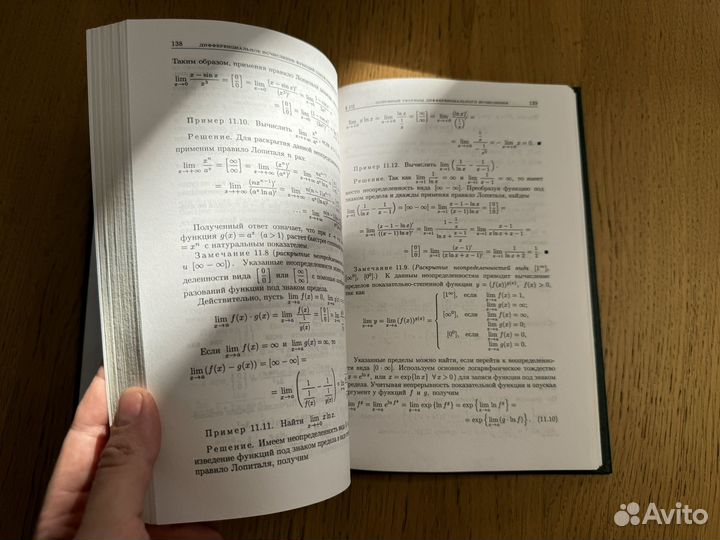 138 ДИФФЕРЕНЦИАЛЬНОЕ ИСЧИСЛЕНИЕ ФУНКЦИЙ
Таким образом, применяя правило Лопиталя
lim x→0 (x − sin x)/x³ = [0/0] = lim x→0 (x − sin x)′/(x³)′ = lim x→0 (1 −
= [0/0] = lim x→0
Пример 11.10. Вычислить lim x→+∞ xⁿ/aˣ
Решение. Для раскрытия данной
применим правило Лопиталя n раз:
lim x→+∞ xⁿ/aˣ = [∞/∞] = lim x→+∞ (xⁿ)′/(aˣ)′ =
= lim x→+∞ (nxⁿ⁻¹)′/(aˣ ln a)′ = lim x→+∞
... = lim x→+∞
Полученный ответ означает, что при
функция g(x) = aˣ (a > 1) растет быстрее
= xⁿ с натуральным показателем.
Замечание 11.8 (раскрытие
и [∞ − ∞]). Указанные неопределенности
деленности вида [0/0] или [∞/∞] с помощью
разований функции под знаком предела.
Действительно, пусть lim x→a f(x) = 0,
lim x→a f(x) · g(x) = lim x→a f(x)/(1/g(x)) = [0/0]
Если lim x→a f(x) = ∞ и lim x→a g(x) = ∞, то
lim x→a (f(x) − g(x)) = [∞ − ∞] =
= lim x→a (1/(1/f(x)) − 1/(1/g(x))) =
Пример 11.11. Найти lim x→+0 x ln x.
Решение. Имеем неопределенность вида
изведение функций под знаком предела в
правило Лопиталя, получим
139
lim x→+0 x ln x = lim x→+0 ln x/(1/x) = [∞/∞] = lim x→+0 (ln x)′/(1/x)′ =
= lim x→+0 (1/x)/(−1/x²) = − lim x→+0 x = 0.
Пример 11.12. Вычислить lim x→1 (1/ln x − 1/(x−1)).
Решение. Так как lim x→1 1/ln x = ∞, lim x→1 1/(x−1) = ∞, то имеет
место неопределенность вида [∞ − ∞]. Преобразуя функцию под
знаком предела и дважды применяя правило Лопиталя, найдем
lim x→1 (1/ln x − 1/(x−1)) = [∞ − ∞] = lim x→1 (x−1−ln x)/((x−1) ln x) = [0/0] =
= lim x→1 (x−1−ln x)′/((x−1) ln x)′ = lim x→1 (x−1)/(x ln x+x−1) = [0/0] =
= lim x→1 (x−1)′/(x ln x+x−1)′ = lim x→1 1/(ln x+2) = 1/2.
Замечание 11.9 (Раскрытие неопределенностей вида [1^∞],
[∞⁰], [0⁰].) К данным неопределенностям приводит вычисление
пределов показательно-степенной функции y = (f(x))^g(x), f(x) > 0,
так как
[1^∞], если lim x→a f(x) = 1,
lim x→a g(x) = ∞;
lim x→a y = lim x→a (f(x))^g(x) = { [∞⁰], если lim x→a f(x) = ∞,
lim x→a g(x) = 0;
[0⁰], если lim x→a f(x) = 0,
lim x→a g(x) = 0.
Указанные пределы можно найти, если перейти к неопределённости
вида [0 · ∞]. Используем основное логарифмическое тождество
или x = exp{ln x} ∀x > 0) для записи функции под знаком
предела. Учитывая непрерывность показательной функции и опуская
аргумент у функций f и g, получим
lim x→a f^g = lim x→a e^(ln f^g) = lim x→a exp{ln f^g} = exp{lim x→a ln f^g} =
= exp{lim x→a (g · ln f)}. (11.10)
Avito